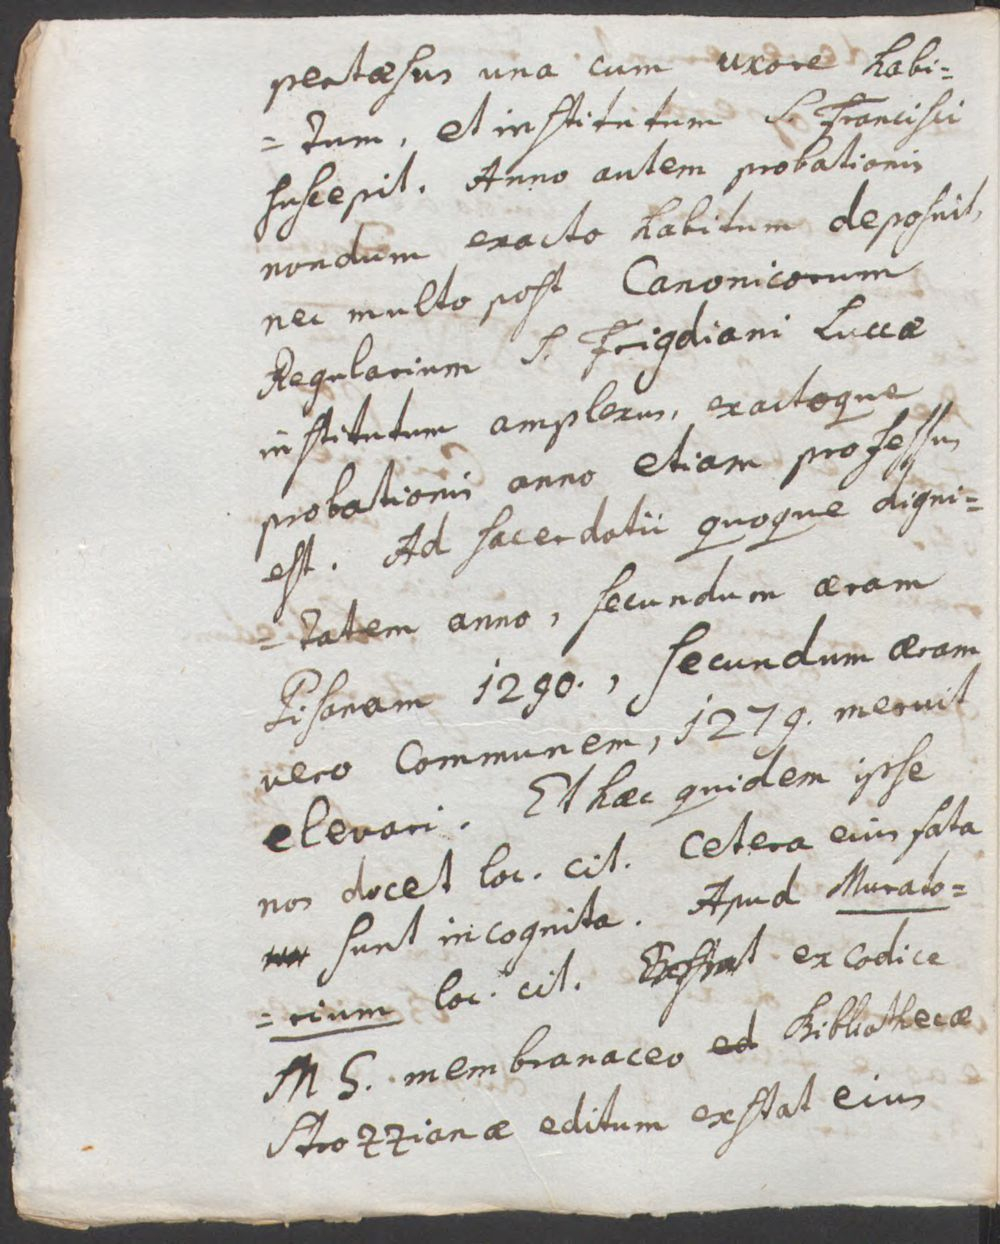 pertæsus una cum uxore habi=
=tum, et institutum S. Francisci
suscepit. Anno autem probationis
nondum exacto habitum deposuit,
nec multo post Canonicorum
Regularium S. Frigdiani Luccæ
institutum amplexus, exactoque
probationis anno etiam professus
est. Ad sacerdotii quoque digni=
=tatem anno, secundum æram
Pisanam 1290., secundum æram
vero communem, 1279. meruit
elevari. Et hæc quidem ipse
nos docet loc. cit. Cetera eius fata
sunt incognita. Apud Murato=
=rium loc. cit. ex codice
MS. membranaceo ed Bibliothecæ
Strozzianæ editum exstat eius